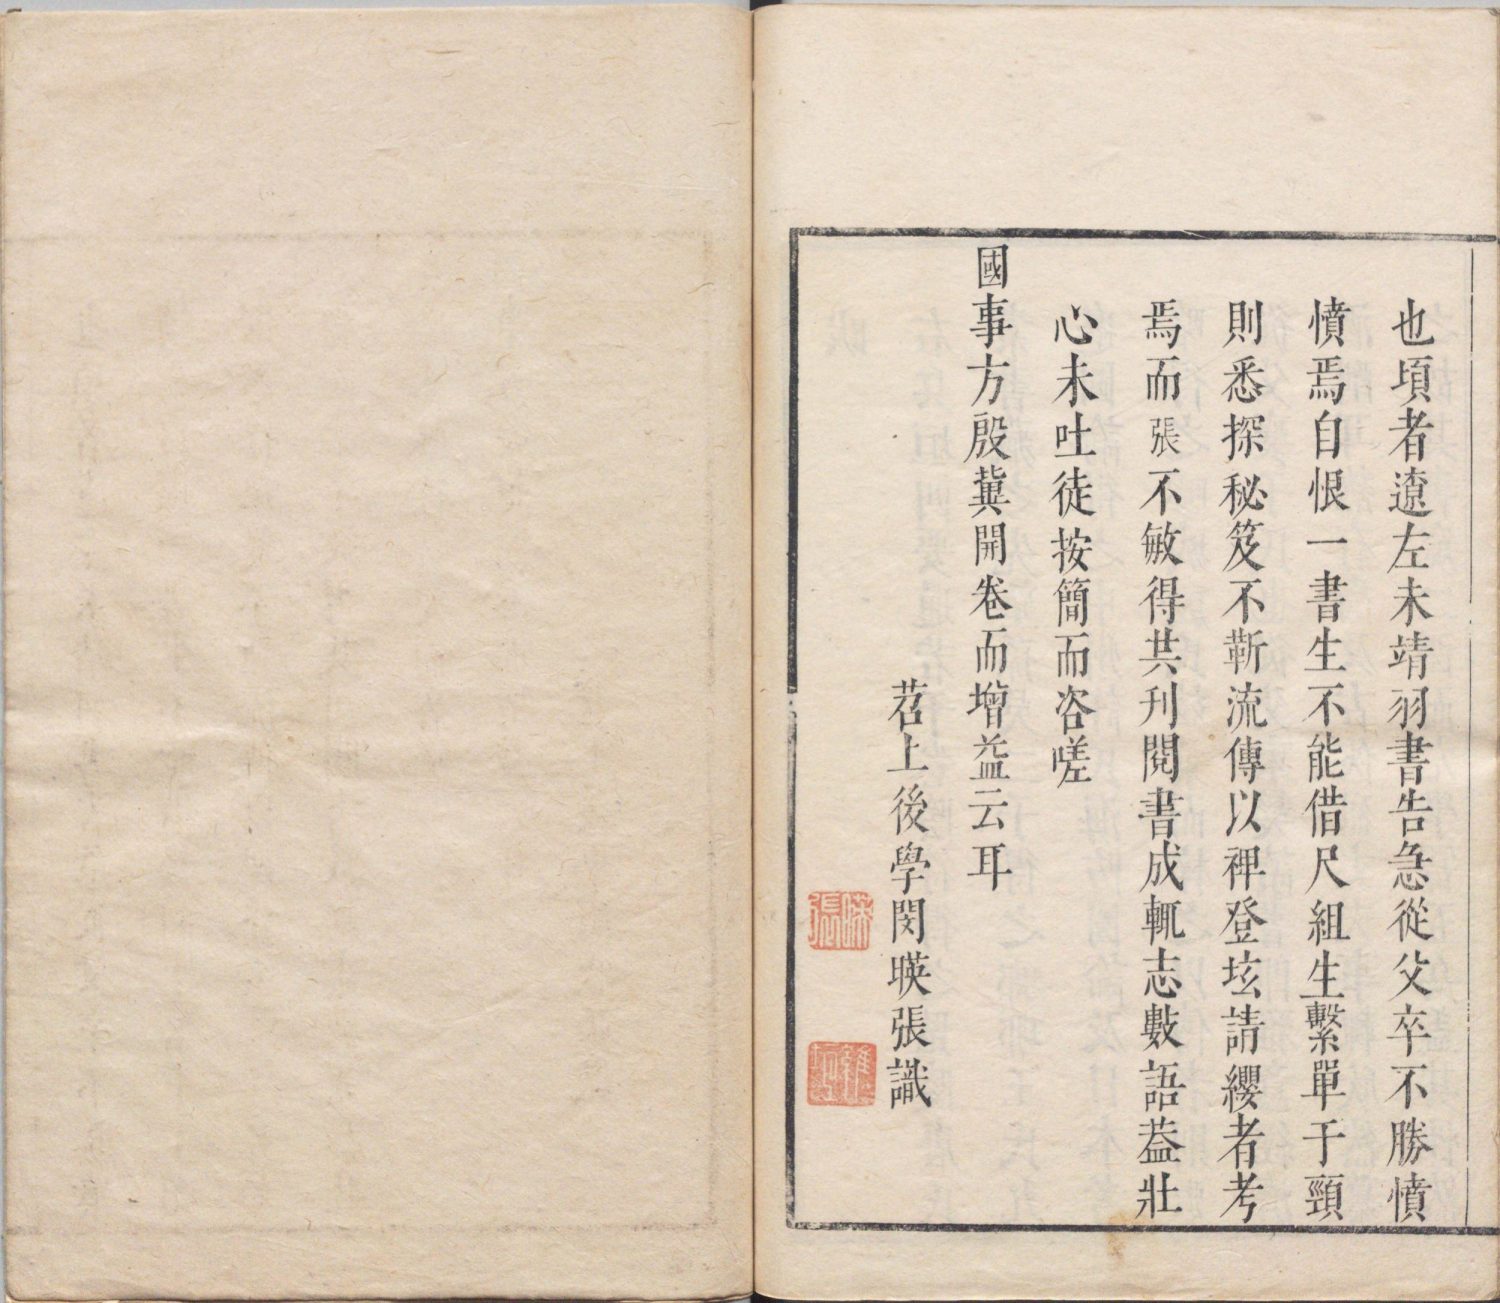 也頃者遼左未靖羽書告急從父卒不勝憤
憤焉自恨一書生不能借尺組生繫單于頸
則悉探秘笈不靳流傳以裨登垓請纓者考
焉而張不敏得共刋閱書成輒志數語葢壯
心未吐徒按簡而咨嗟
國事方殷冀開卷而增益云耳
苕上後學閔暎張識